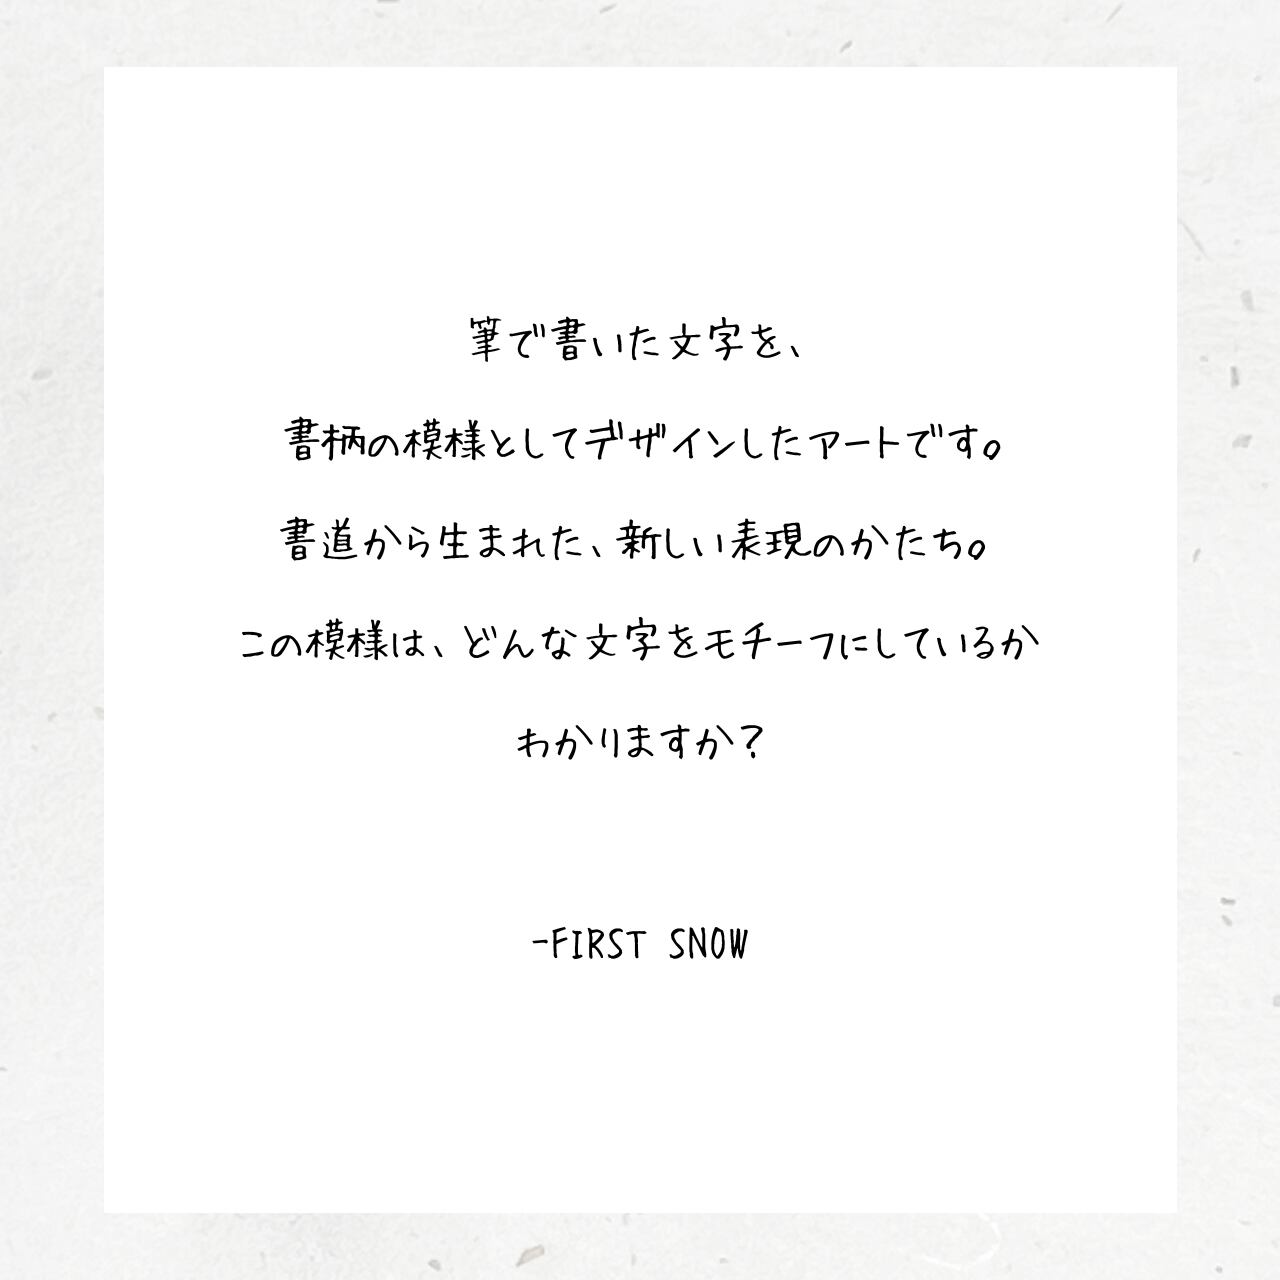 筆で書いた文字を、
書柄の模様としてデザインしたアートです。
書道から生まれた、新しい表現のかたち。
この模様は、どんな文字をモチーフにしているか
わかりますか？
-FIRST SNOW